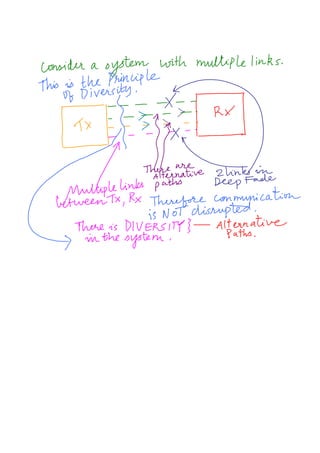 Consider a system with multiple links.
This is the Principle
of Diversity.
Tx
Rx
There are
Alternative
paths
2 links in
Deep Fade
Multiple links
between Tx, Rx
Therefore communication
is NOT disrupted.
There is DIVERSITY} — Alternative
in the system.
Paths.